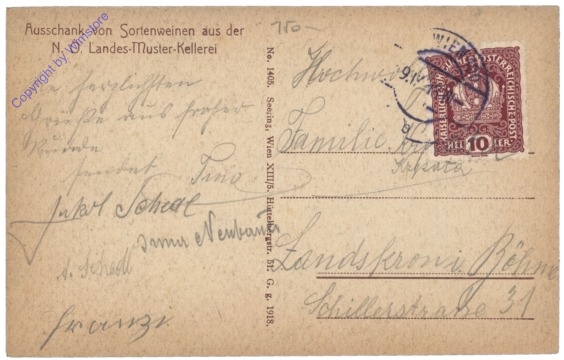 150-
Ausschank von Sortenweinen aus der
N. Ö. Landes-Muster-Kellerei
Copyright by Wimstore
herzlichsten
Grüße aus froher
Runde
sendet Tino
Schedl
Irma Neubauer
A. Schedl
Franzi
No. 1405. Seering, Wien XIII/5. Hüttelbergstr. 51. G. g. 1918.
WIEN
KAISERLICHE KÖNIGLICHE ÖSTERREICHISCHE POST
HELLER 10
Familie
Landskron i. Böhmen
Schillerstrasse 31